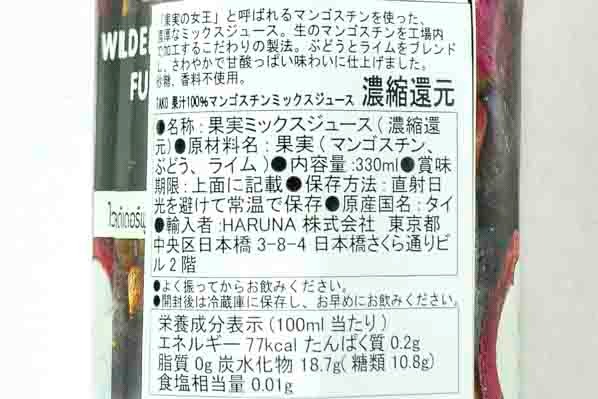 「果実の女王」と呼ばれるマンゴスチンを使った、
濃厚なミックスジュース。生のマンゴスチンを工場内
で加工するこだわりの製法。ぶどうとライムをブレンド
し、さわやかで甘酸っぱい味わいに仕上げました。
砂糖、香料不使用。
TAKO 果汁100%マンゴスチンミックスジュース 濃縮還元
●名称:果実ミックスジュース(濃縮還
元)●原材料名:果実(マンゴスチン、
ぶどう、ライム)●内容量:330ml●賞味
期限:上面に記載●保存方法:直射日
光を避けて常温で保存●原産国名:タイ
●輸入者:HARUNA 株式会社 東京都
中央区日本橋 3-8-4 日本橋さくら通りビ
ル2階
●よく振ってからお飲みください。
●開封後は冷蔵庫に保存し、お早めにお飲みください。
栄養成分表示(100ml 当たり)
エネルギー 77kcal たんぱく質 0.2g
脂質 0g 炭水化物 18.7g(糖類 10.8g)
食塩相当量 0.01g
WLDE
FU